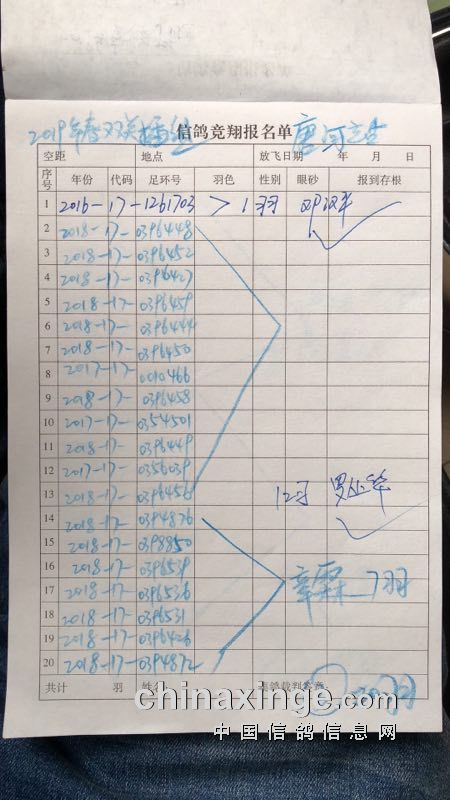 2019年春双关插组 信鸽竞翔报名单 唐河
空距 地点 放飞日期 年 月 日
序号 年份 代码 足环号 羽色 性别 眼砂 报到存根
1 2016-17-1261703 > 1羽
2 2018-17-0396448
3 2018-17-0396452
4 2018-17-0396427
5 2018-17-0396459
6 2018-17-0396444
7 2018-17-0396450
8 2017-17-0010466
9 2018-17-0396458
10 2017-17-0354501
11 2018-17-0396449
12 2017-17-0356039
13 2018-17-0396456 12羽
14 2018-17-0394876
15 2018-17-0398850
16 2018-17-0396539
17 2018-17-0396536 章霖 7羽
18 2018-17-0396531
19 2018-17-0396426
20 2018-17-0394872
共计 羽 姓名 信鸽裁判签章
chinaxinge.com
中国信鸽信息网